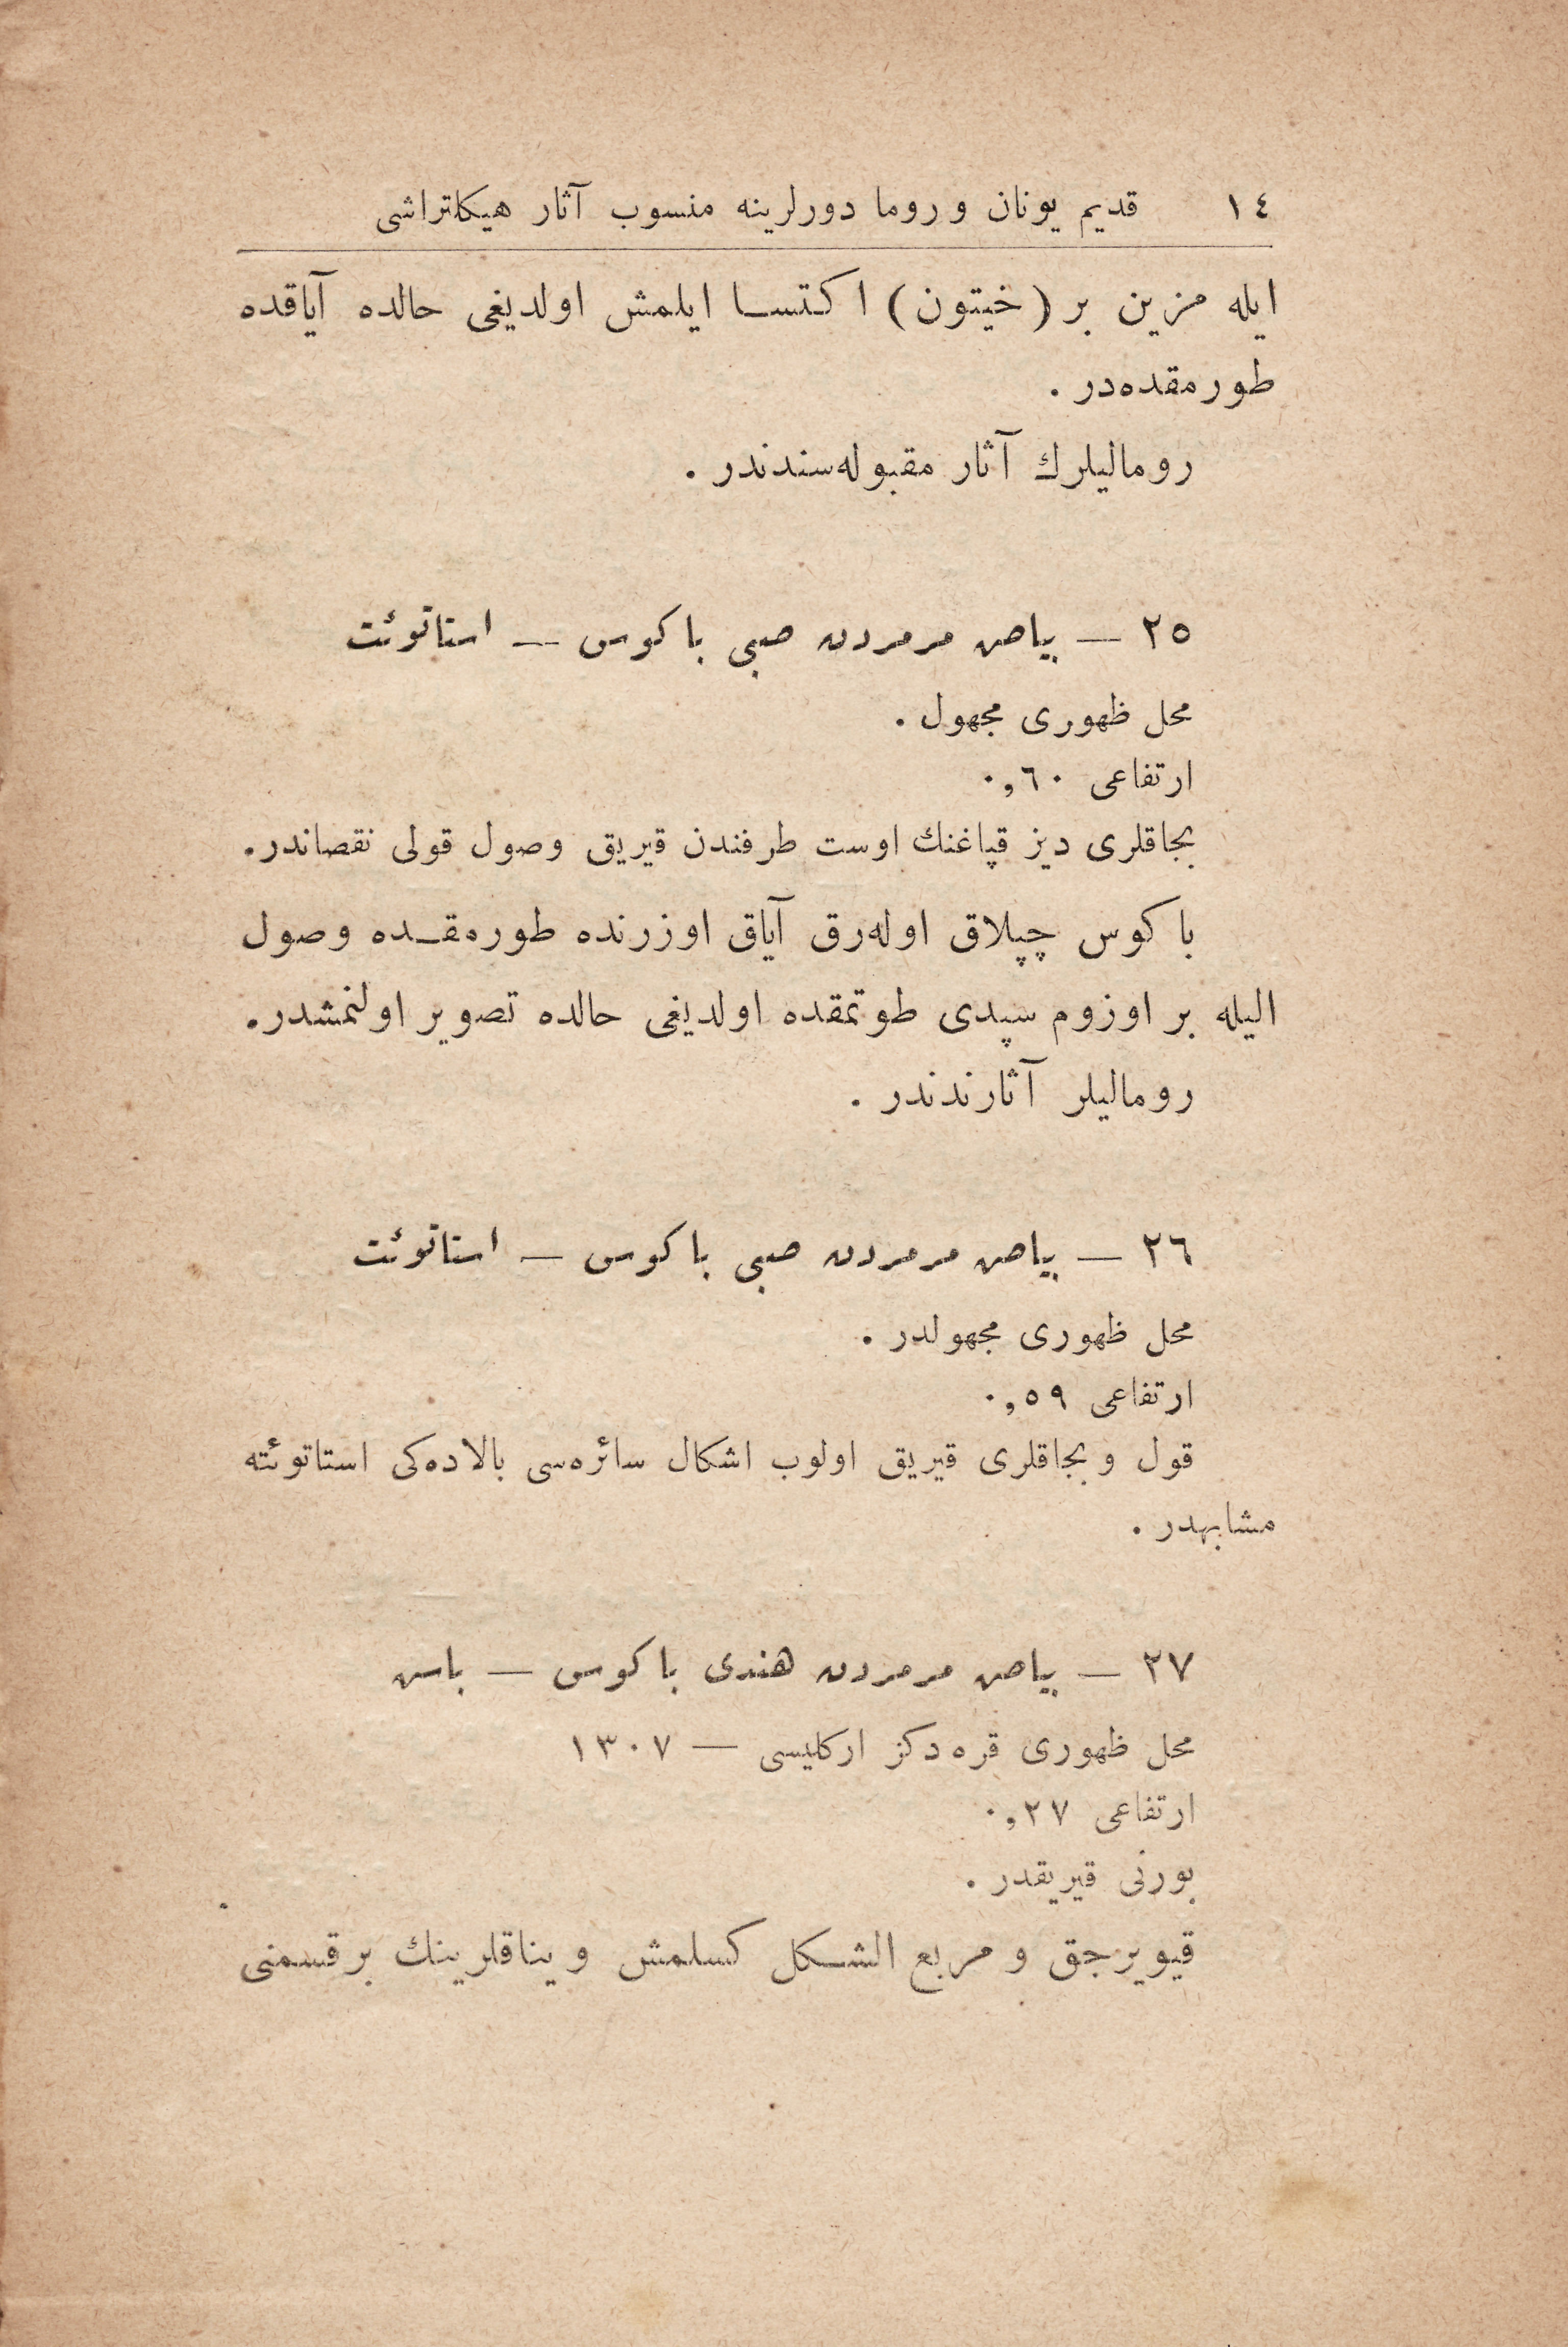 ١٤ قديم يونان و روما دورلرينه منسوب آثار هيكلتراشى
ايله مزين بر (خيتون) اكتسا ايلمش اولديغى حالده آياقده
طورمقده‌در .
روماليلرك آثار مقبوله‌سندندر .
٢٥ — بياض مرمردن صبى باكوس — استاتوئت
محل ظهورى مجهول .
ارتفاعى ٠,٦٠
بجاقلرى ديز قپاغنك اوست طرفندن قيريق وصول قولى نقصاندر.
باكوس چپلاق اوله‌رق آياق اوزرنده طورمقده وصول
اليله بر اوزوم سپدى طوتمقده اولديغى حالده تصوير اولنمشدر.
روماليلر آثارندندر .
٢٦ — بياض مرمردن صبى باكوس — استاتوئت
محل ظهورى مجهولدر .
ارتفاعى ٠,٥٩
قول و بجاقلرى قيريق اولوب اشكال سائره‌سى بالاده‌كى استاتوئته
مشابهدر .
٢٧ — بياض مرمردن هندى باكوس — باش
محل ظهورى قره دكز اركليسى — ١٣٠٧
ارتفاعى ٠,٢٧
بورنى قيريقدر .
قيويرجق و مربع الشكل كسلمش و يناقلرينك بر قسمنى